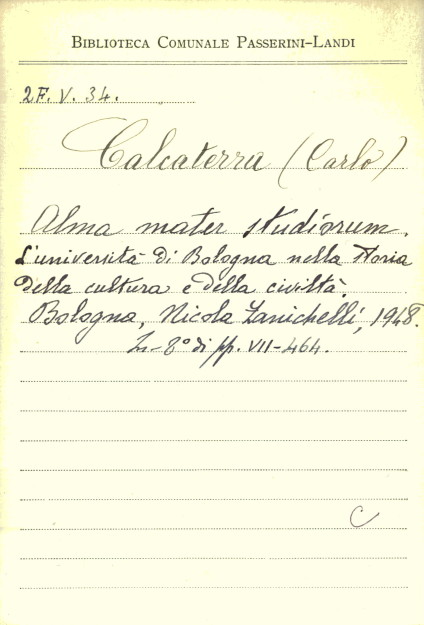 BIBLIOTECA COMUNALE PASSERINI-LANDI
2F. V. 34.
Calcaterra (Carlo)
Alma mater studiorum.
L'università di Bologna nella storia
della cultura e della civiltà.
Bologna, Nicola Zanichelli, 1948.
In-8° di pp. VII-464.
C